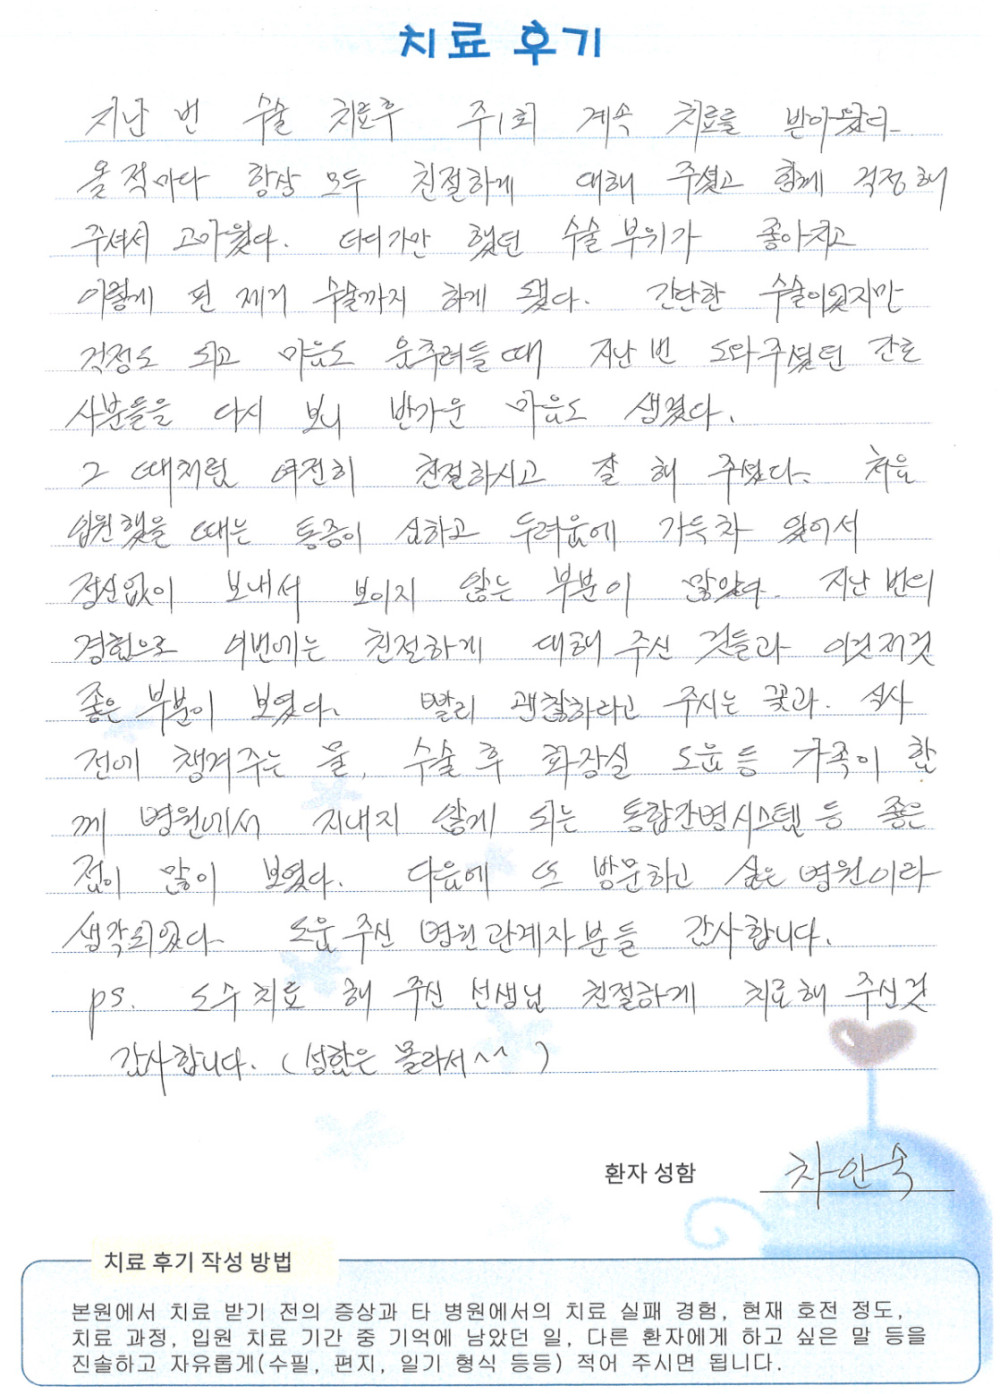 치료 후기
지난 번 수술 치료후 주1회 계속 치료를 받아왔다.
올 적마다 항상 모두 친절하게 대해 주셨고 함께 걱정해
주셔서 고마웠다. 더디가만 했던 수술 부위가 좋아지고
이렇게 핀 제거 수술까지 하게 됐다. 간단한 수술이었지만
걱정도 되고 마음도 움추려들 때 지난 번 도와주셨던 간호
사분들을 다시 보니 반가운 마음도 생겼다.
그 때처럼 여전히 친절하시고 잘 해 주셨다. 처음
입원했을 때는 통증이 심하고 두려움에 가득차 있어서
정신없이 보내서 보이지 않는 부분이 많았다. 지난 번의
경험으로 이번에는 친절하게 대해 주신 것들과 이것저것
좋은 부분이 보였다. 빨리 괜찮하라고 주시는 꽃과. 식사
전에 챙겨주는 물, 수술 후 화장실 도움 등 가족이 함
께 병원에서 지내지 않게 되는 통합간병시스템 등 좋은
점이 많이 보였다. 다음에 또 방문하고 싶은 병원이라
생각되었다. 도움 주신 병원 관계자 분들 감사합니다.
ps. 도수치료 해 주신 선생님 친절하게 치료해 주신것
감사합니다. (성함은 몰라서^^)
환자 성함 차안숙
치료 후기 작성 방법
본원에서 치료 받기 전의 증상과 타 병원에서의 치료 실패 경험, 현재 호전 정도,
치료 과정, 입원 치료 기간 중 기억에 남았던 일, 다른 환자에게 하고 싶은 말 등을
진솔하고 자유롭게(수필, 편지, 일기 형식 등등) 적어 주시면 됩니다.